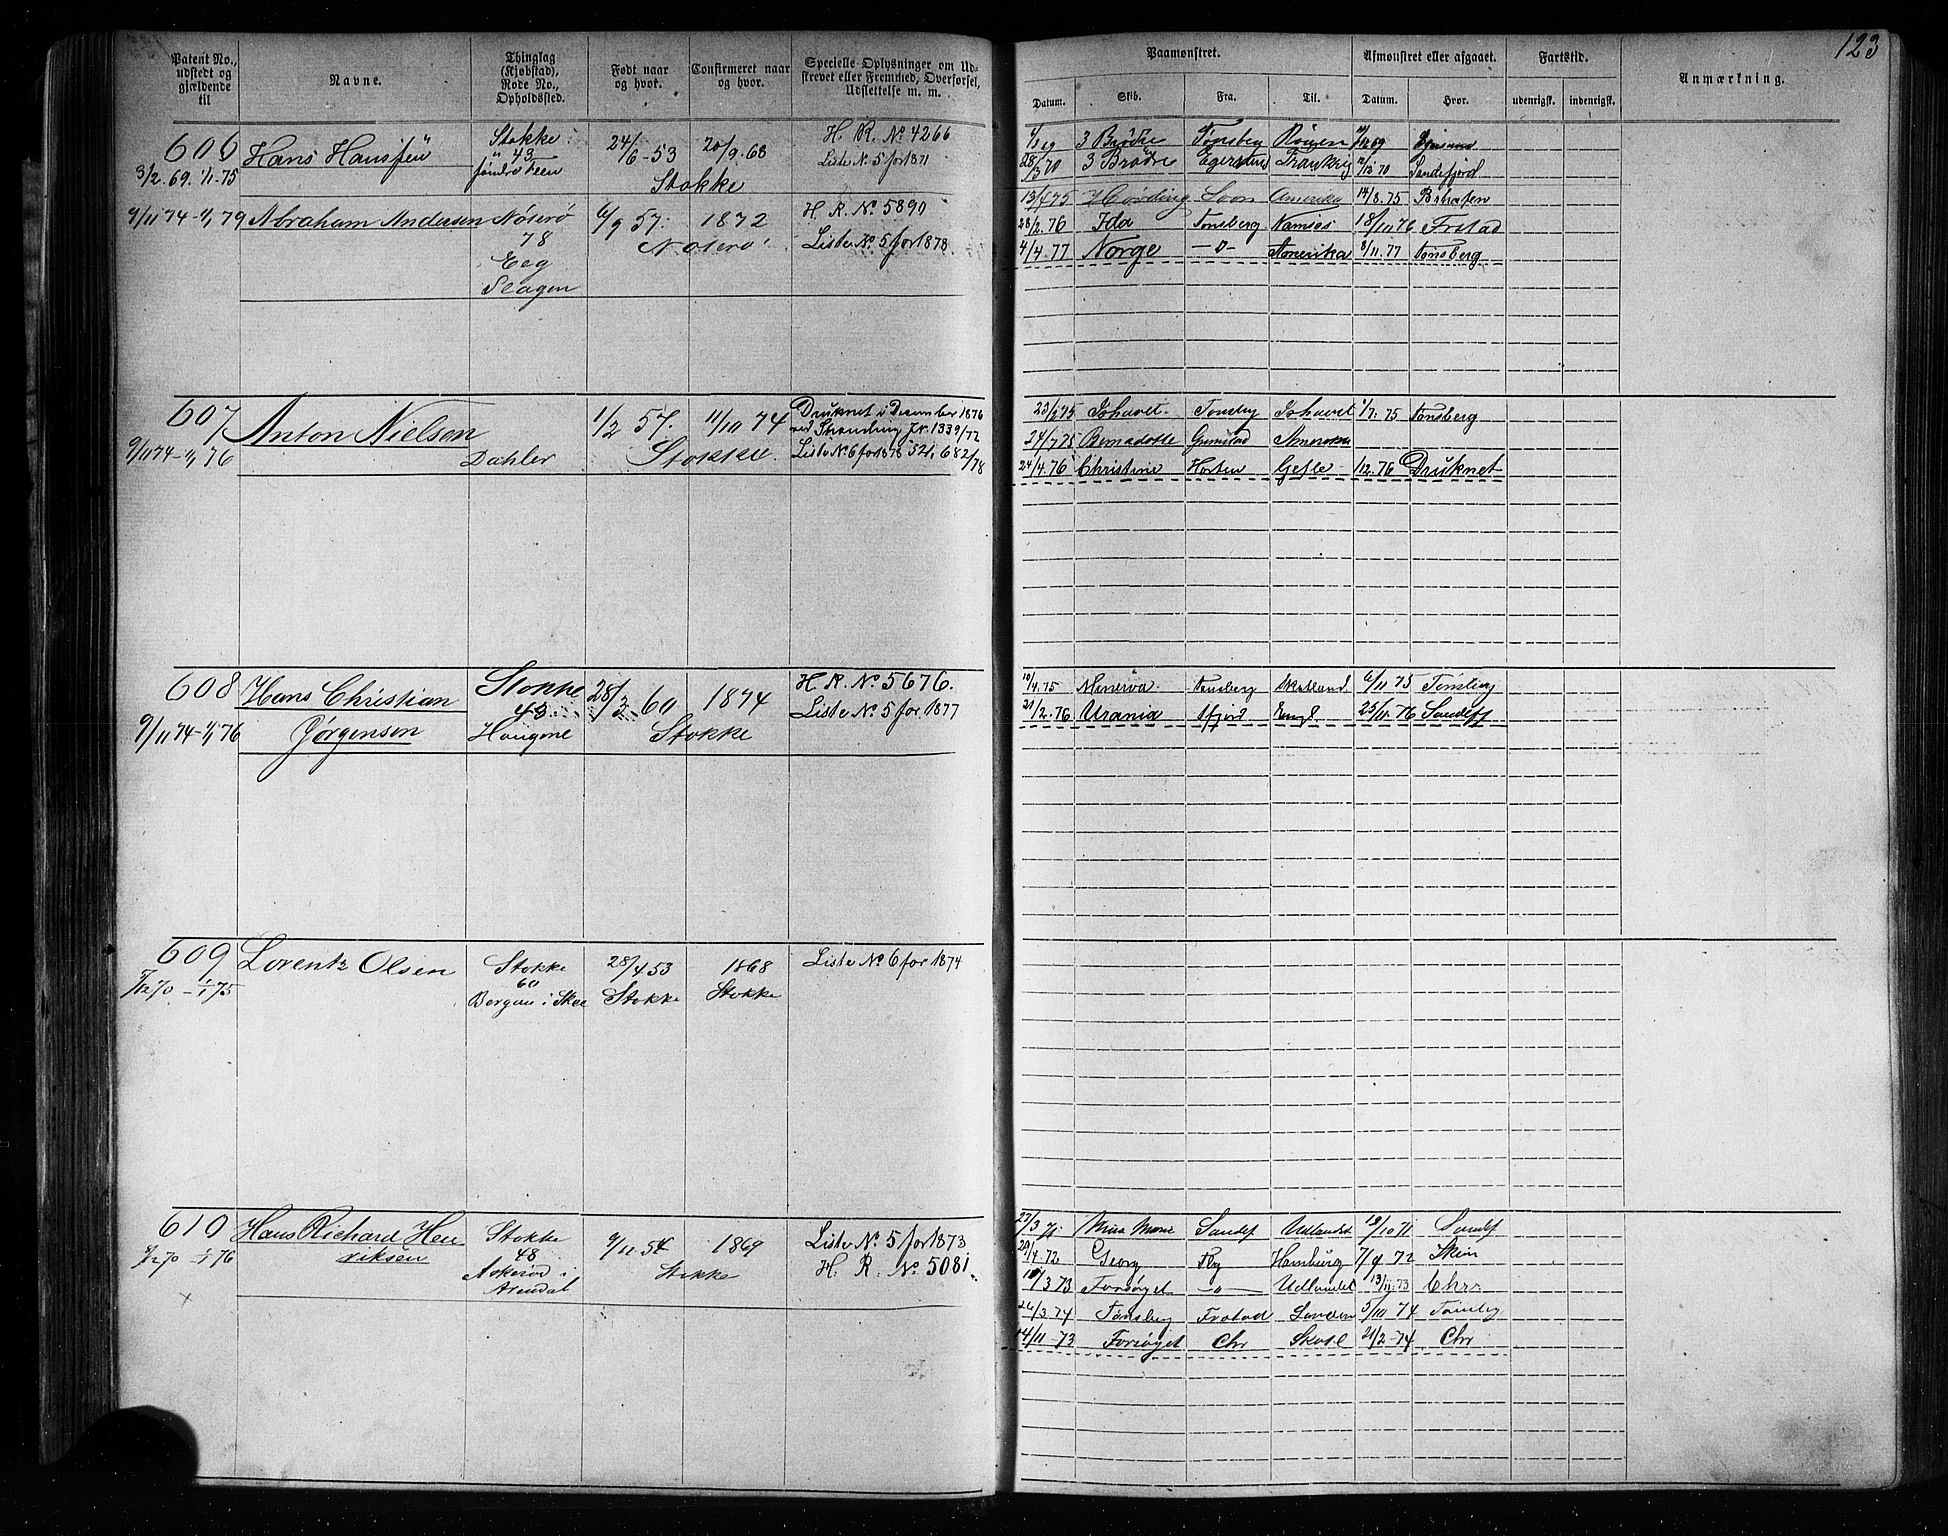 123
Patent No., udstedt og gjældende til
Navne.
Thinglag (Kjøbstad), Rode No., Opholdssted.
Født naar og hvor.
Confirmeret naar og hvor.
Specielle Oplysninger om Udskrevet eller Fremmed, Overførsel, Udslettelse m. m.
Paamønstret.
Afmønstret eller afgaaet.
Fartstid.
Anmærkning.
Datum. Skib. Fra. Til. Datum. Hvor. udenrigsk. indenrigsk.
606
3/2.69. 1/1-75
Hans Hansſen
Stokke
43
24/6-53
20/9.68
Stokke
H. R. No 4266
Liste No. 5 for 1871
3 Brødre Tønsberg
28/3 70 3 Brødre Sandefjord
9/11 74 - 1/1 79
Abraham Andersen
Nøterø
78
Eeg
Slagen
6/9 57.
1872
Nøterø
H. R. No 5890
Liste No. 5 for 1878.
13/4 75 Høvding Soon Amerika 14/8. 75
28/2. 76 Ida Tønsberg Namsos 18/10 76 Frstad
4/4. 77 Norge -o- Amerika 8/11. 77 Tønsberg
607
9/11 74 - 1/1 76
Anton Nielsen
Dahler
1/2 57.
11/10 74
Stokke
Druknet i December 1876
ved Stranding Jr. 1339/72
Liste No 6 for 1878 521. 682/78
23/2 75 Ishavet Tønsbg Ishavet 1/7. 75 Tønsberg
24/7 75 Bernadotte Grimstad Amerika
24/4. 76 Christine Horten Gefle 12. 76 Druknet
608
9/11 74 - 1/1 76
Hans Christian
Jørgensen
Stokke
43
Haugene
28/3 60
1874
Stokke
H. R. No 5676.
Liste No. 5 for 1877
10/4. 75 Minerva Tønsberg Skotland 6/11 75 Tønsbrg
21/2. 76 Urania Sfjord Engl. 25/11. 76 Sandeff
609
7/12 70 - 1/1 75
Lorentz Olsen
Stokke
60
Bergan i Skee
28/4 53
Stokke
1868
Stokke
Liste No 6 for 1874
610
9/2 70 - 1/1 76
Hans Richard Hen
riksen
Stokke
48
Askerød i
Arendal
9/11 54
1869
Stokke
Liste No. 5 for 1873
H. R. No 5081.
27/3 71 Sandef Udlandet 19/10 71 Sandef
20/4. 72 Georg Hamburg 7/9 72 Skien
10/3 73 Forsøget -o- Udlandet 13/11. 73 Chr.
26/3. 74 Tønsberg Frstad London 5/10 74 Tønsbg
14/11 - 73 Forsøget Chr Skotl 21/2 - 74 Chr